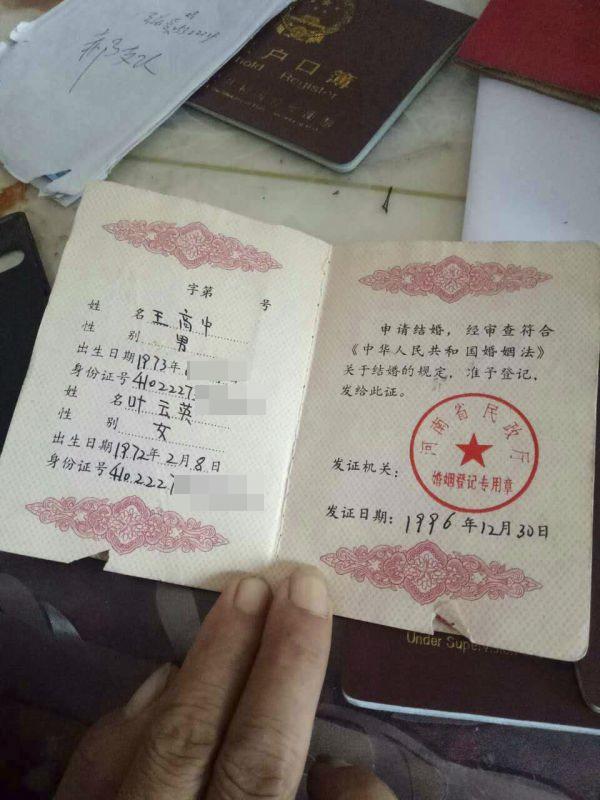 户口簿
Household Register
字第 号
姓 名 王商中
性 别 男
出生日期 1973年1
身份证号 4102227
姓 名 叶云英
性 别 女
出生日期 1972年2月8日
身份证号 4102227
申请结婚，经审查符合
《中华人民共和国婚姻法》
关于结婚的规定，准予登记，
发给此证。
河南省民政厅
婚姻登记专用章
发证机关：
发证日期：1996年12月30日
Under Supervision